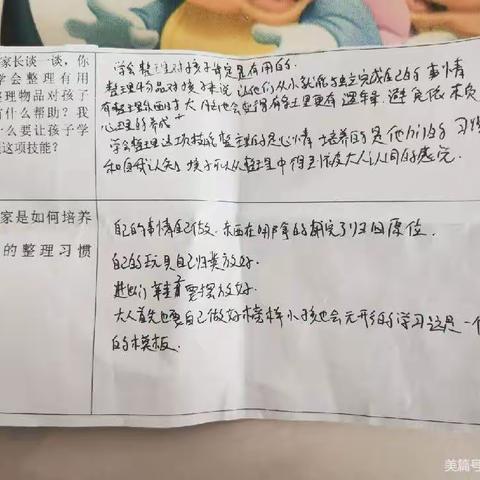 家长谈一谈，你
学会整理有用
整理物品对孩子
有什么帮助？我
什么要让孩子学
这项技能？
学会整理对孩子肯定是有用的.
整理物品对孩子来说 让他们从小就能独立完成自己的事情
心理的养成
学会整理这项技能 整理的是心情 培养的是他们的习惯
和自我认知 孩子可以从整理中得到 大人认同的感觉.
家是如何培养
的整理习惯
自己的事情自己做. 东西在哪拿的用完了归回原位.
自己的玩具自己归类放好.
进门 鞋要摆放好.
大人首先也要自己做好榜样 小孩也会无形的学习 这是一个
的模板.
美篇号